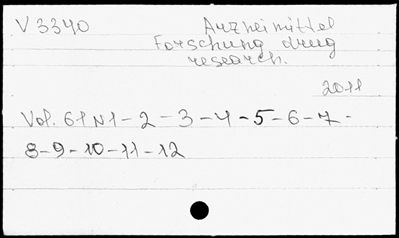 V 3340 Arzneimittel
Forschung drug
research.
2011
Vol. 61 N1-2-3-4-5-6-7-
8-9-10-11-12